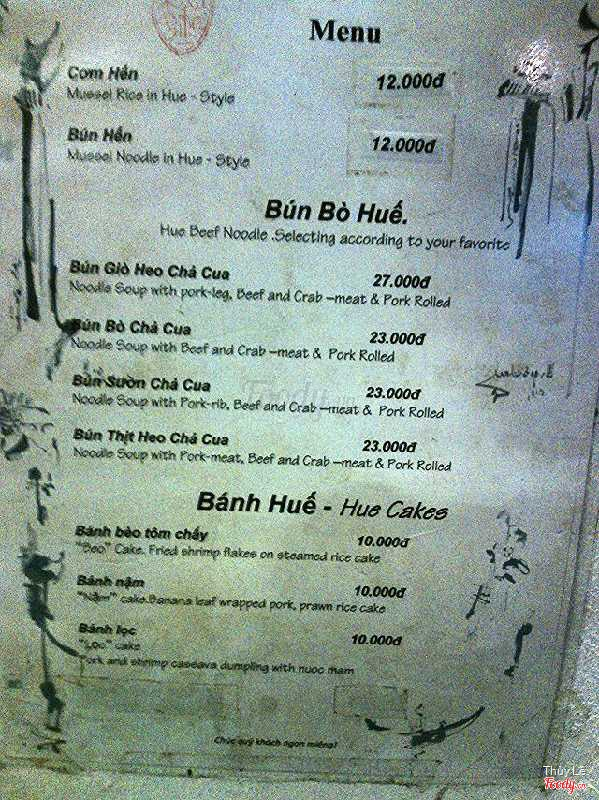 Menu
Cơm Hến 12.000đ
Mussel Rice in Hue - Style
Bún Hến 12.000đ
Mussel Noodle in Hue - Style
Bún Bò Huế.
Hue Beef Noodle .Selecting according to your favorite
Bún Giò Heo Chả Cua 27.000đ
Noodle Soup with pork-leg, Beef and Crab –meat & Pork Rolled
Bún Bò Chả Cua 23.000đ
Noodle Soup with Beef and Crab –meat & Pork Rolled
Bún Sườn Chả Cua 23.000đ
Noodle Soup with Pork-rib, Beef and Crab –meat & Pork Rolled
Bún Thịt Heo Chả Cua 23.000đ
Noodle Soup with Pork-meat, Beef and Crab –meat & Pork Rolled
Bánh Huế - Hue Cakes
Bánh bèo tôm chấy 10.000đ
"Beo" Cake. Fried shrimp flakes on steamed rice cake
Bánh nậm 10.000đ
"Nậm" cake.Banana leaf wrapped pork, prawn rice cake
Bánh lọc 10.000đ
"Lọc" cake
Pork and shrimp caseava dumpling with nuoc mam
Chúc quý khách ngon miệng!
Thùy Lê
Foody.vn